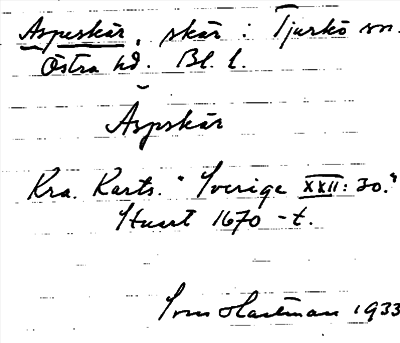 Aspeskär, skär i Tjurkö sn.
Östra hd. Bl. l.
Äspskär
Kra. Karts. "Sverige XXII: 30."
Stuart 1670-t.
Sven Hartman 1933